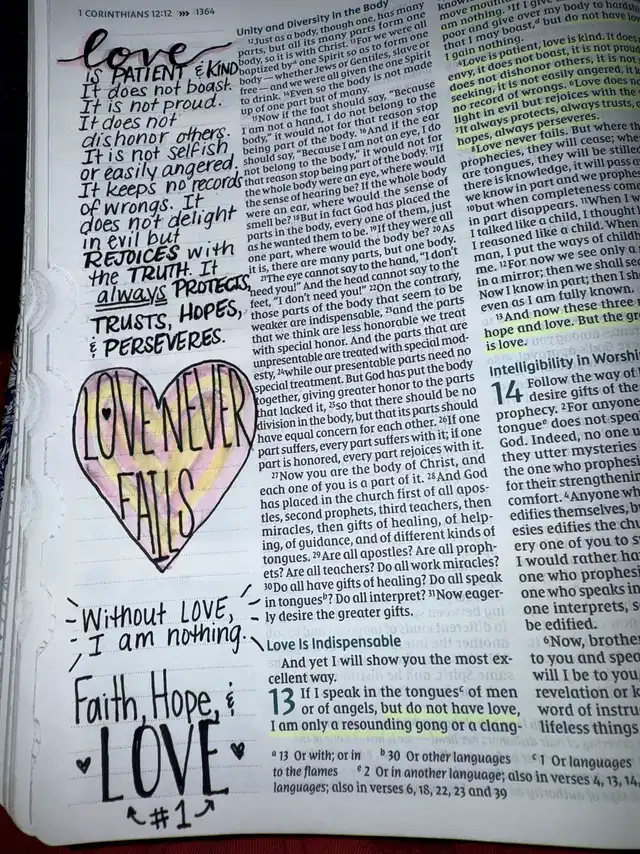 1 CORINTHIANS 12:12 »» 1364
love
IS PATIENT & KIND
It does not boast.
It is not proud.
It does not
dishonor others.
It is not selfish
or easily angered.
It keeps no records
of wrongs. It
does not delight
in evil but
REJOICES with
the TRUTH. It
always PROTECTS,
TRUSTS, HOPES,
& PERSEVERES.
LOVE NEVER
FAILS
Without LOVE,
I am nothing.
Faith, Hope, &
LOVE
#1
Unity and Diversity in the Body
12Just as a body, though one, has many
parts, but all its many parts form one
body, so it is with Christ. 13For we were all
baptized by a one Spirit so as to form one
body—whether Jews or Gentiles, slave or
free—and we were all given the one Spirit
to drink. 14Even so the body is not made
up of one part but of many.
15Now if the foot should say, “Because
I am not a hand, I do not belong to the
body,” it would not for that reason stop
being part of the body. 16And if the ear
should say, “Because I am not an eye, I do
not belong to the body,” it would not for
that reason stop being part of the body. 17If
the whole body were an eye, where would
the sense of hearing be? If the whole body
were an ear, where would the sense of
smell be? 18But in fact God has placed the
parts in the body, every one of them, just
as he wanted them to be. 19If they were all
one part, where would the body be? 20As
it is, there are many parts, but one body.
21The eye cannot say to the hand, “I don’t
need you!” And the head cannot say to the
feet, “I don’t need you!” 22On the contrary,
those parts of the body that seem to be
weaker are indispensable, 23and the parts
that we think are less honorable we treat
with special honor. And the parts that are
unpresentable are treated with special mod-
esty, 24while our presentable parts need no
special treatment. But God has put the body
together, giving greater honor to the parts
that lacked it, 25so that there should be no
division in the body, but that its parts should
have equal concern for each other. 26If one
part suffers, every part suffers with it; if one
part is honored, every part rejoices with it.
27Now you are the body of Christ, and
each one of you is a part of it. 28And God
has placed in the church first of all apos-
tles, second prophets, third teachers, then
miracles, then gifts of healing, of help-
ing, of guidance, and of different kinds of
tongues. 29Are all apostles? Are all proph-
ets? Are all teachers? Do all work miracles?
30Do all have gifts of healing? Do all speak
in tongues b? Do all interpret? 31Now eager-
ly desire the greater gifts.
Love Is Indispensable
And yet I will show you the most ex-
cellent way.
13 If I speak in the tongues c of men
or of angels, but do not have love,
I am only a resounding gong or a clang-
am nothing. 3If I give
poor and give over my body to hardsh
that I may boast, d but do not have lo
I gain nothing.
4Love is patient, love is kind. It does
envy, it does not boast, it is not prou
does not dishonor others, it is not
seeking, it is not easily angered, it
no record of wrongs. 6Love does n
light in evil but rejoices with the
It always protects, always trusts,
hopes, always perseveres.
8Love never fails. But where th
prophecies, they will cease; whe
are tongues, they will be stilled
there is knowledge, it will pass
we know in part and we prophes
10but when completeness com
in part disappears. 11When I w
I talked like a child, I though
I reasoned like a child. When
man, I put the ways of childh
me. 12For now we see only a
in a mirror; then we shall see
Now I know in part; then I sh
even as I am fully known.
13And now these three
hope and love. But the gr
is love.
Intelligibility in Worship
14 Follow the way of
desire gifts of the
prophecy. 2For anyone
tongue e does not spea
God. Indeed, no one u
they utter mysteries
the one who prophesi
for their strengthenin
comfort. 4Anyone wh
edifies themselves, b
esies edifies the ch
ery one of you to s
I would rather ha
one who prophesi
one who speaks in
one interprets, s
be edified.
6Now, brothe
to you and spea
will I be to you,
revelation or k
word of instru
lifeless things
a 13 Or with; or in b 30 Or other languages c 1 Or languages
to the flames e 2 Or in another language; also in verses 4, 13, 14,
languages; also in verses 6, 18, 22, 23 and 39